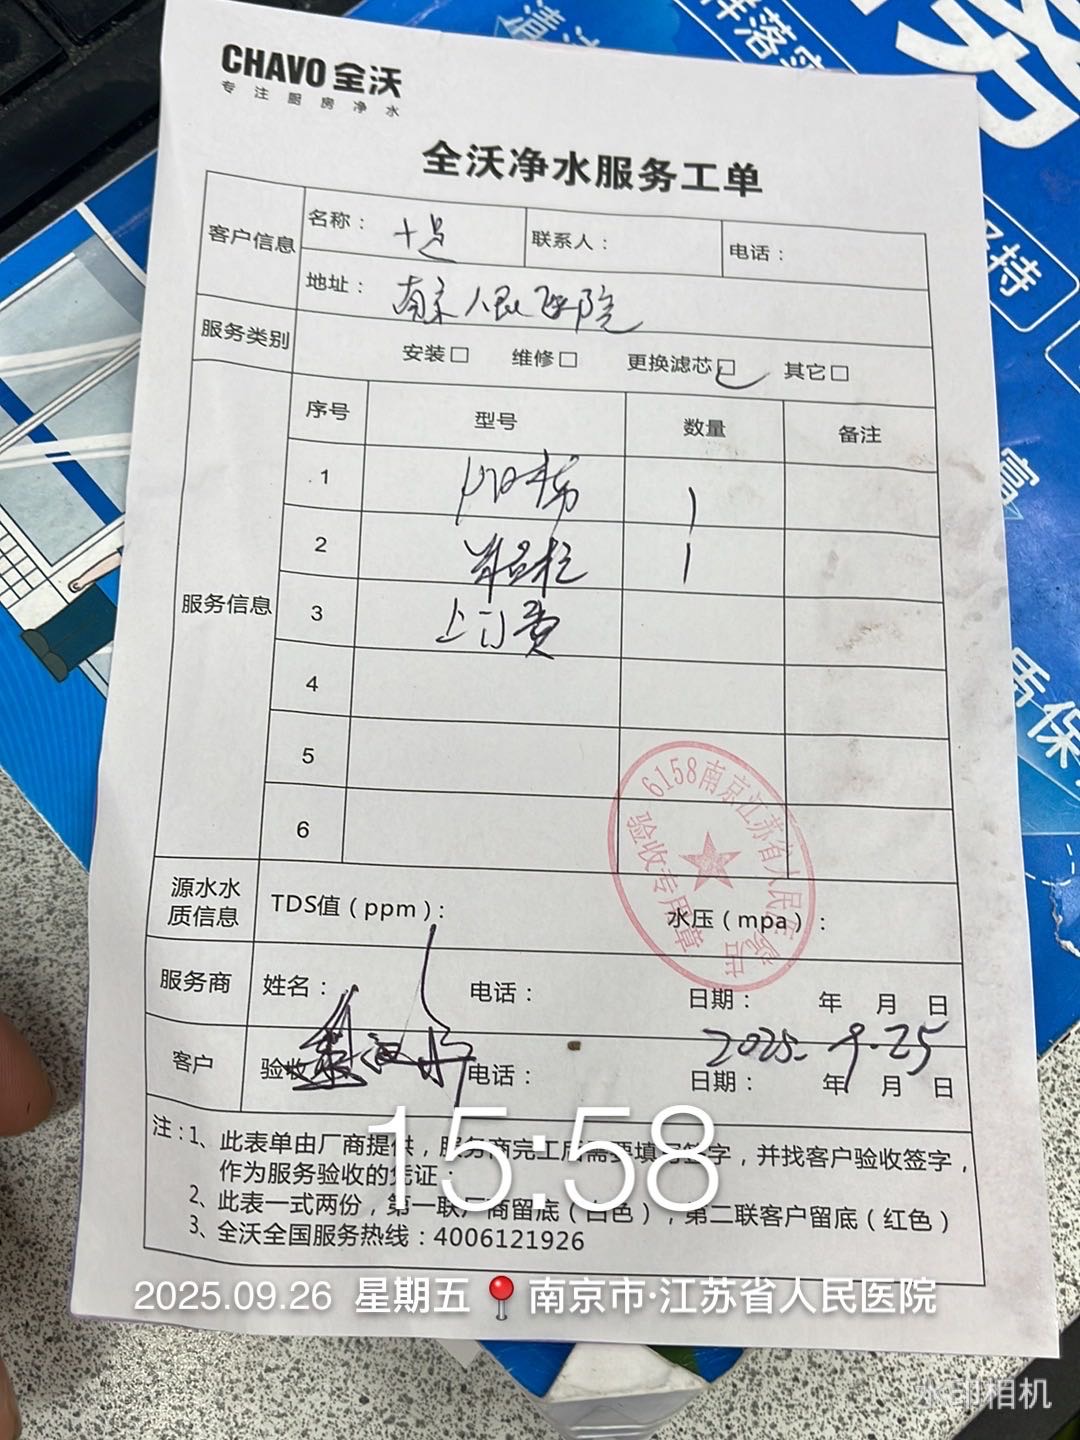 CHAVO 全沃
专注厨房净水
全沃净水服务工单
客户信息
名称：
联系人：
电话：
地址： 南京人民医院
服务类别
安装□ 维修□ 更换滤芯□ 其它□
服务信息
序号 型号 数量 备注
1 1
2 1
3 上门费
4
5
6
6158南京江苏省人民医院店
验收专用章
源水水质信息
TDS值（ppm）：
水压（mpa）：
服务商
姓名：
电话：
日期： 年 月 日
2025.9.25
客户
验收
电话：
日期： 年 月 日
注：1、此表单由厂商提供，服务商完工后需要填写签字，并找客户验收签字，
作为服务验收的凭证；
2、此表一式两份，第一联厂商留底（白色），第二联客户留底（红色）
3、全沃全国服务热线：4006121926
15:58
2025.09.26 星期五 南京市·江苏省人民医院
水印相机